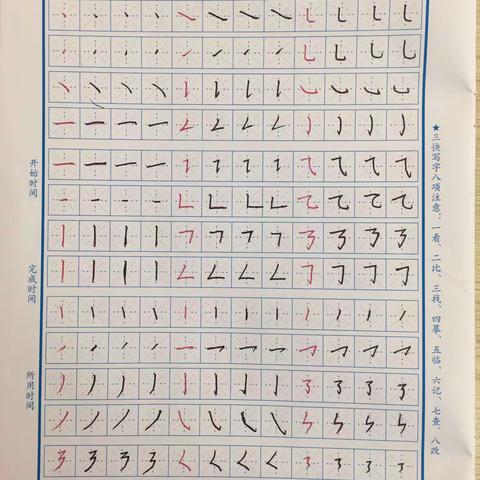 ★三快写字八项注意：一看、二比、三找、四摹、五临、六记、七查、八改
开始时间
完成时间
所用时间